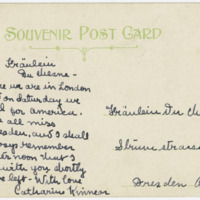 SOUVENIR POST CARD
Fräulein
Du Chesne -
re we are in London
on Saturday we
l for america.
e all miss
resden, and I shall
ays remember
ternoon that I
with you shortly
e left - With love
Catharine Kinnear
Fräulein Du Ch
Struve strass
Dresden A